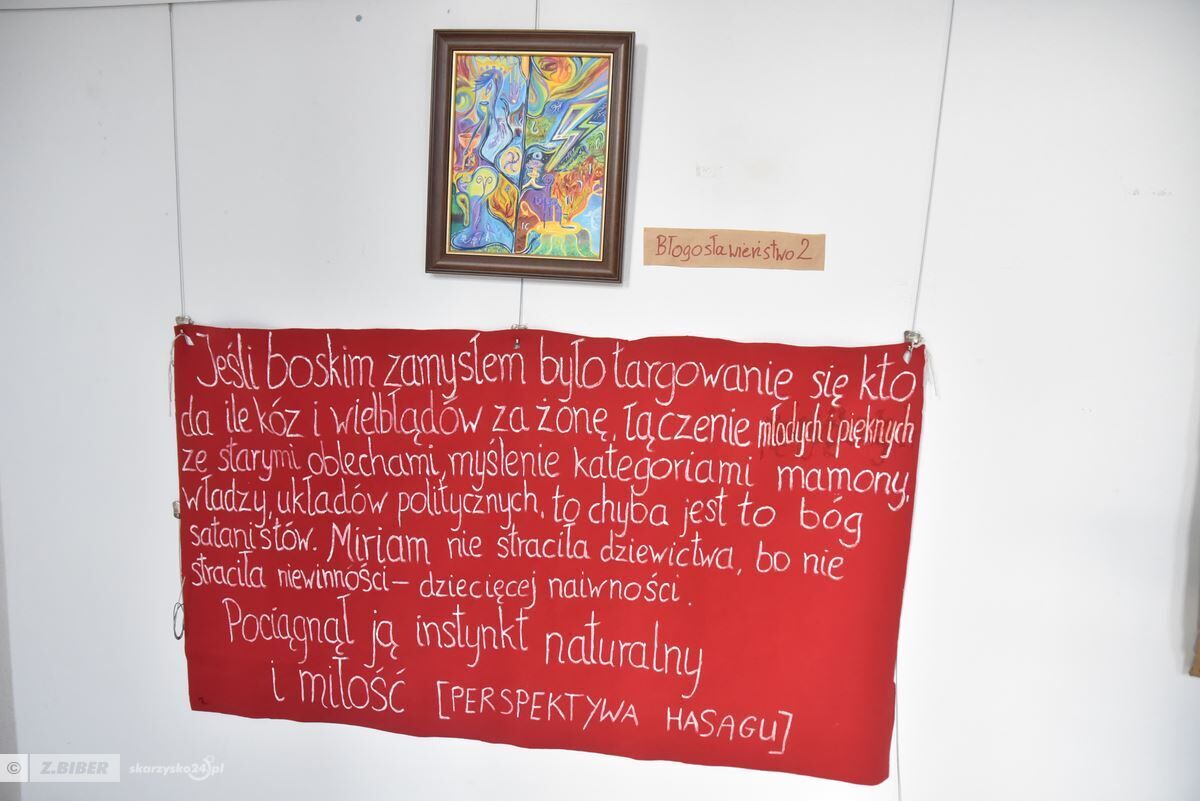 Błogosławieństwo 2
Jeśli boskim zamysłem było targowanie się kto
da ile kóz i wielbłądów za żonę, łączenie młodych i pięknych
ze starymi oblechami, myślenie kategoriami mamony,
władzy, układów politycznych, to chyba jest to bóg
satanistów. Miriam nie straciła dziewictwa, bo nie
straciła niewinności – dziecięcej naiwności.
Pociągnął ją instynkt naturalny
i miłość [PERSPEKTYWA HASAGU]
© Z.BIBER skarzysko24.pl